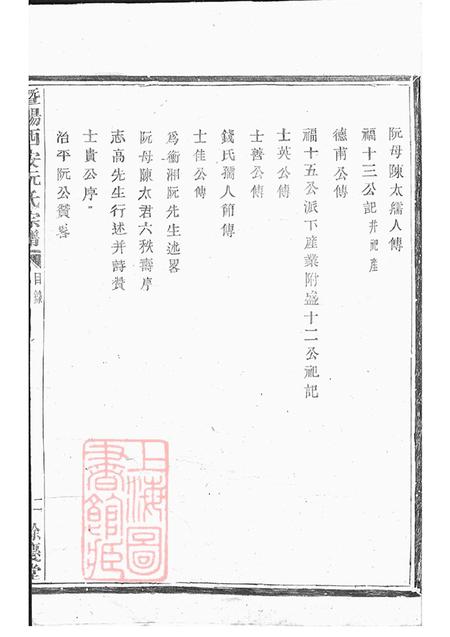 阮母陳太孺人傳
福十三公記并祀產
德甫公傳
福十五公派下產業附盛十二公祀記
士英公傳
士善公傳
錢氏孺人節傳
士佳公傳
為衡湘阮先生述畧
阮母陳太君六秩壽序
志高先生行述并詩贊
士貴公序
治平阮公贊
暨陽西安阮氏宗譜
目錄
二
餘慶堂
上海圖書館藏